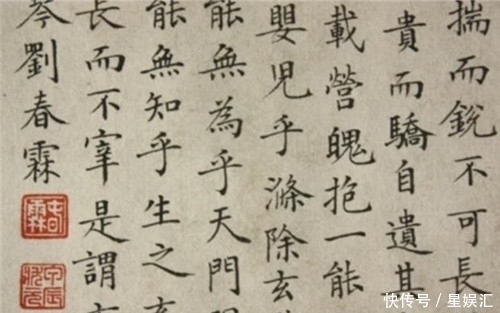 揣而銳不可長
貴而驕自遺其
載營魄抱一能
嬰児乎滌除玄
能無為乎天門
能無知乎生之
長而不宰是謂
劉春霖
春霖
甲辰狀元
快传号/星娱汇